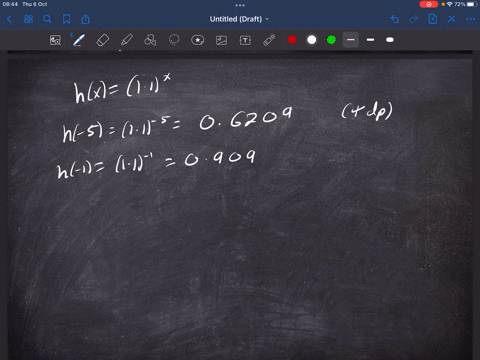 08:44 Thu 6 Oct
72%
Untitled (Draft)
h(x) = (1·1)^x
h(-5) = (1·1)^-5 = 0.6209 (4 dp)
h(-1) = (1·1)^-1 = 0.909